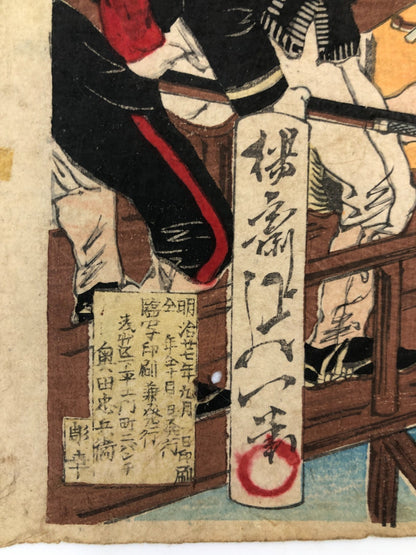 楊斎延一筆
明治廿七年九月 日印刷
仝 年 仝 月 日発行
臨写印刷兼発行
浅草区
奥田忠兵衛
彫幸